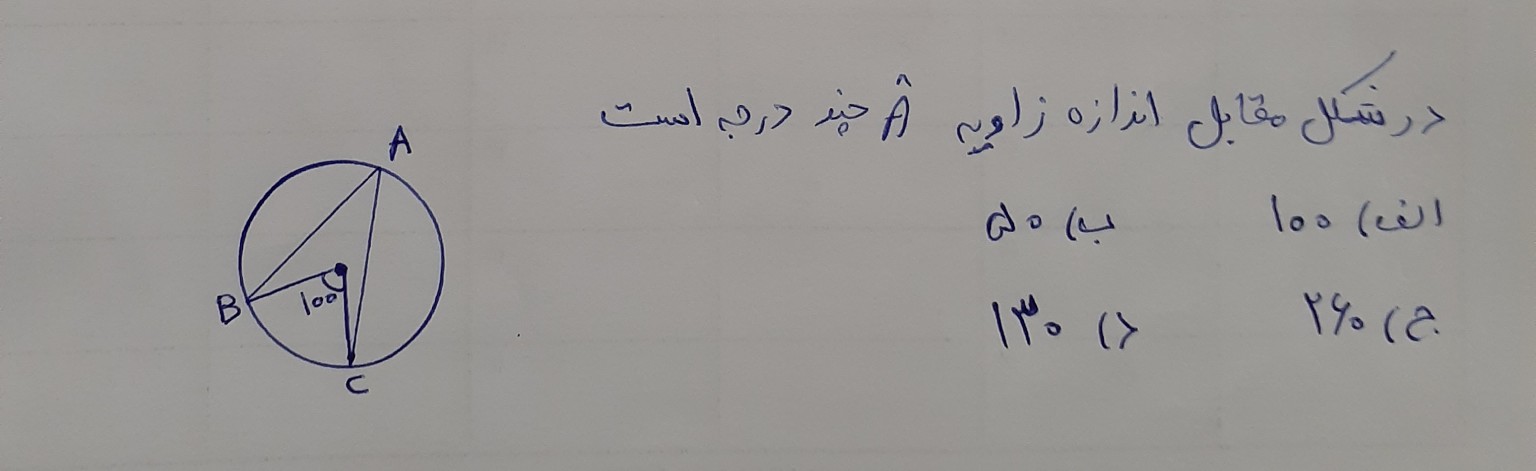 در شکل مقابل اندازه زاویه Â چند درجه است
الف) ۱۰۰ ب) ۵۰
ج) ۲۶۰ د) ۱۳۰
A
B
۱۰۰
C